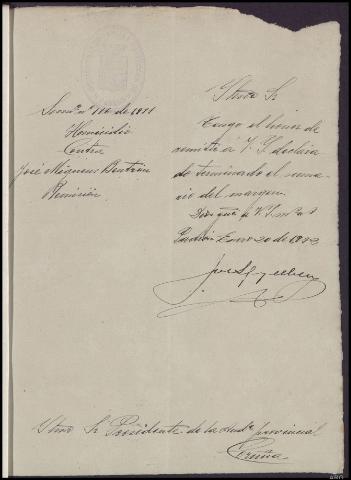 Homicidio
Contra
José Miguens
Remisión
Iltmo Sr
Tengo el honor de
remitir a V. S. declara
do terminado el suma
rio del margen
Dios gue a V. S. ms as
Padrón Enero 20 de
Iltmo Sr Presidente de la Audª provincial
Coruña